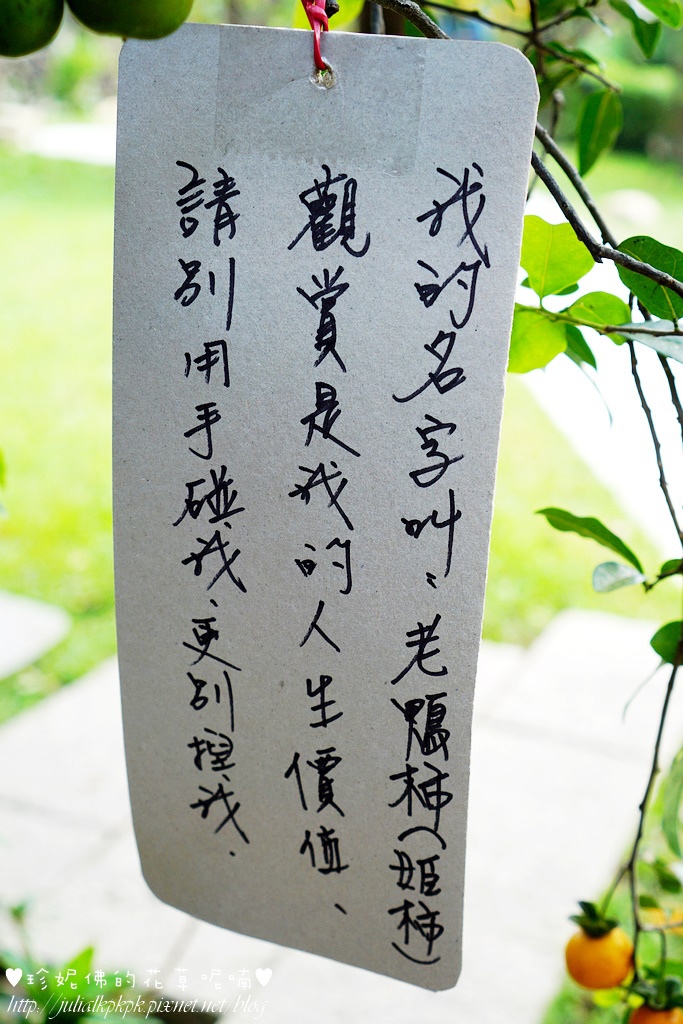 我的名字叫:老鴨柿(姬柿)
觀賞是我的人生價值、
請別用手碰我、更別捏我.
♥珍妮佛的花草呢喃♥
http://julialkpkpk.pixnet.net/blog